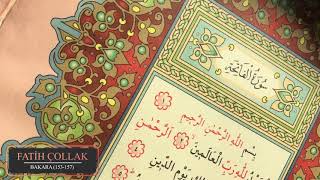 سُورَةُ الْفَاتِحَةِ
بِسْمِ اللّٰهِ الرَّحْمٰنِ الرَّحِيمِ
لِلّٰهِ رَبِّ الْعَالَمِينَ الرَّحْمٰنِ
يَوْمِ الدِّينِ
FATİH ÇOLLAK
BAKARA (153-157)